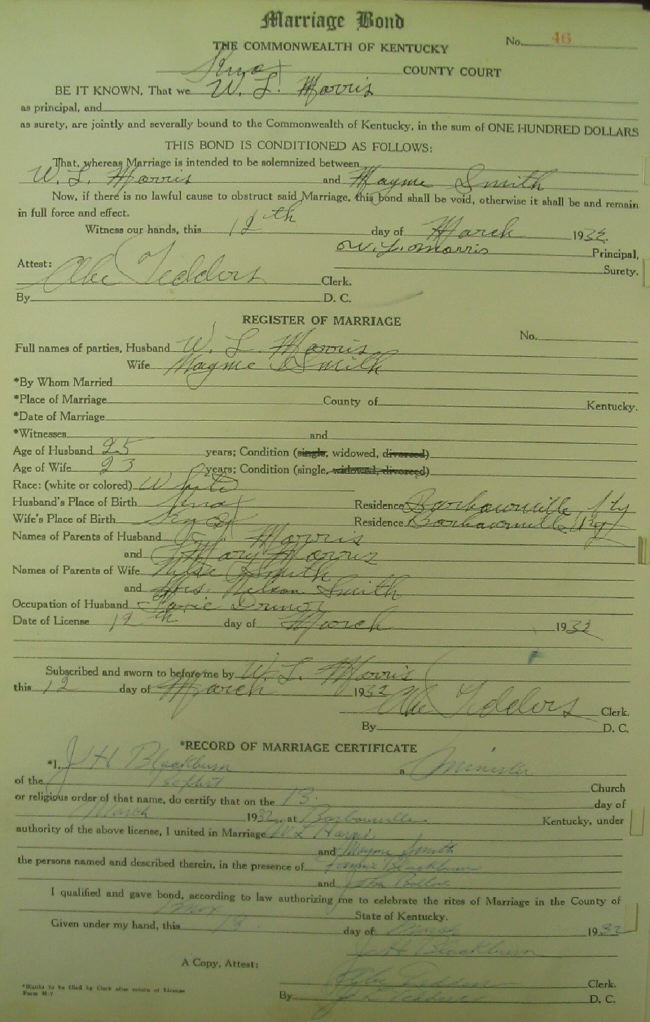 Marriage Bond
No. 46
THE COMMONWEALTH OF KENTUCKY
Knox COUNTY COURT
BE IT KNOWN, That we W. L. Morris
as principal, and
as surety, are jointly and severally bound to the Commonwealth of Kentucky, in the sum of ONE HUNDRED DOLLARS
THIS BOND IS CONDITIONED AS FOLLOWS:
That, whereas Marriage is intended to be solemnized between
W. L. Morris and Mayme Smith
Now, if there is no lawful cause to obstruct said Marriage, this bond shall be void, otherwise it shall be and remain
in full force and effect.
Witness our hands, this 12th day of March 1932.
W. L. Morris Principal,
Surety.
Attest: Abe Tedders Clerk.
By D. C.
REGISTER OF MARRIAGE
No.
Full names of parties, Husband W. L. Morris
Wife Mayme Smith
*By Whom Married
*Place of Marriage County of Kentucky.
*Date of Marriage
*Witnesses and
Age of Husband 25 years; Condition (single, widowed, divorced)
Age of Wife 23 years; Condition (single, widowed, divorced)
Race: (white or colored) White
Husband's Place of Birth Knox Residence Barbourville, Ky
Wife's Place of Birth Knox Residence Barbourville, Ky
Names of Parents of Husband Morris
and Mary Morris
Names of Parents of Wife Smith
and Mrs. Nelson Smith
Occupation of Husband
Date of License 12th day of March 1932
Subscribed and sworn to before me by W. L. Morris
this 12 day of March 1932
Abe Tedders Clerk.
By D. C.
*RECORD OF MARRIAGE CERTIFICATE
*I, J H Blackburn a Minister
of the Baptist Church
or religious order of that name, do certify that on the 13 day of
March 1932, at Barbourville Kentucky, under
authority of the above license, I united in Marriage W L
and Mayme Smith
the persons named and described therein, in the presence of Blackburn
and John
I qualified and gave bond, according to law authorizing me to celebrate the rites of Marriage in the County of
Knox State of Kentucky.
Given under my hand, this day of March 1932
J H Blackburn
A Copy, Attest:
Clerk.
By D. C.
*Blanks to be filled by Clerk after return of License
Form M-7